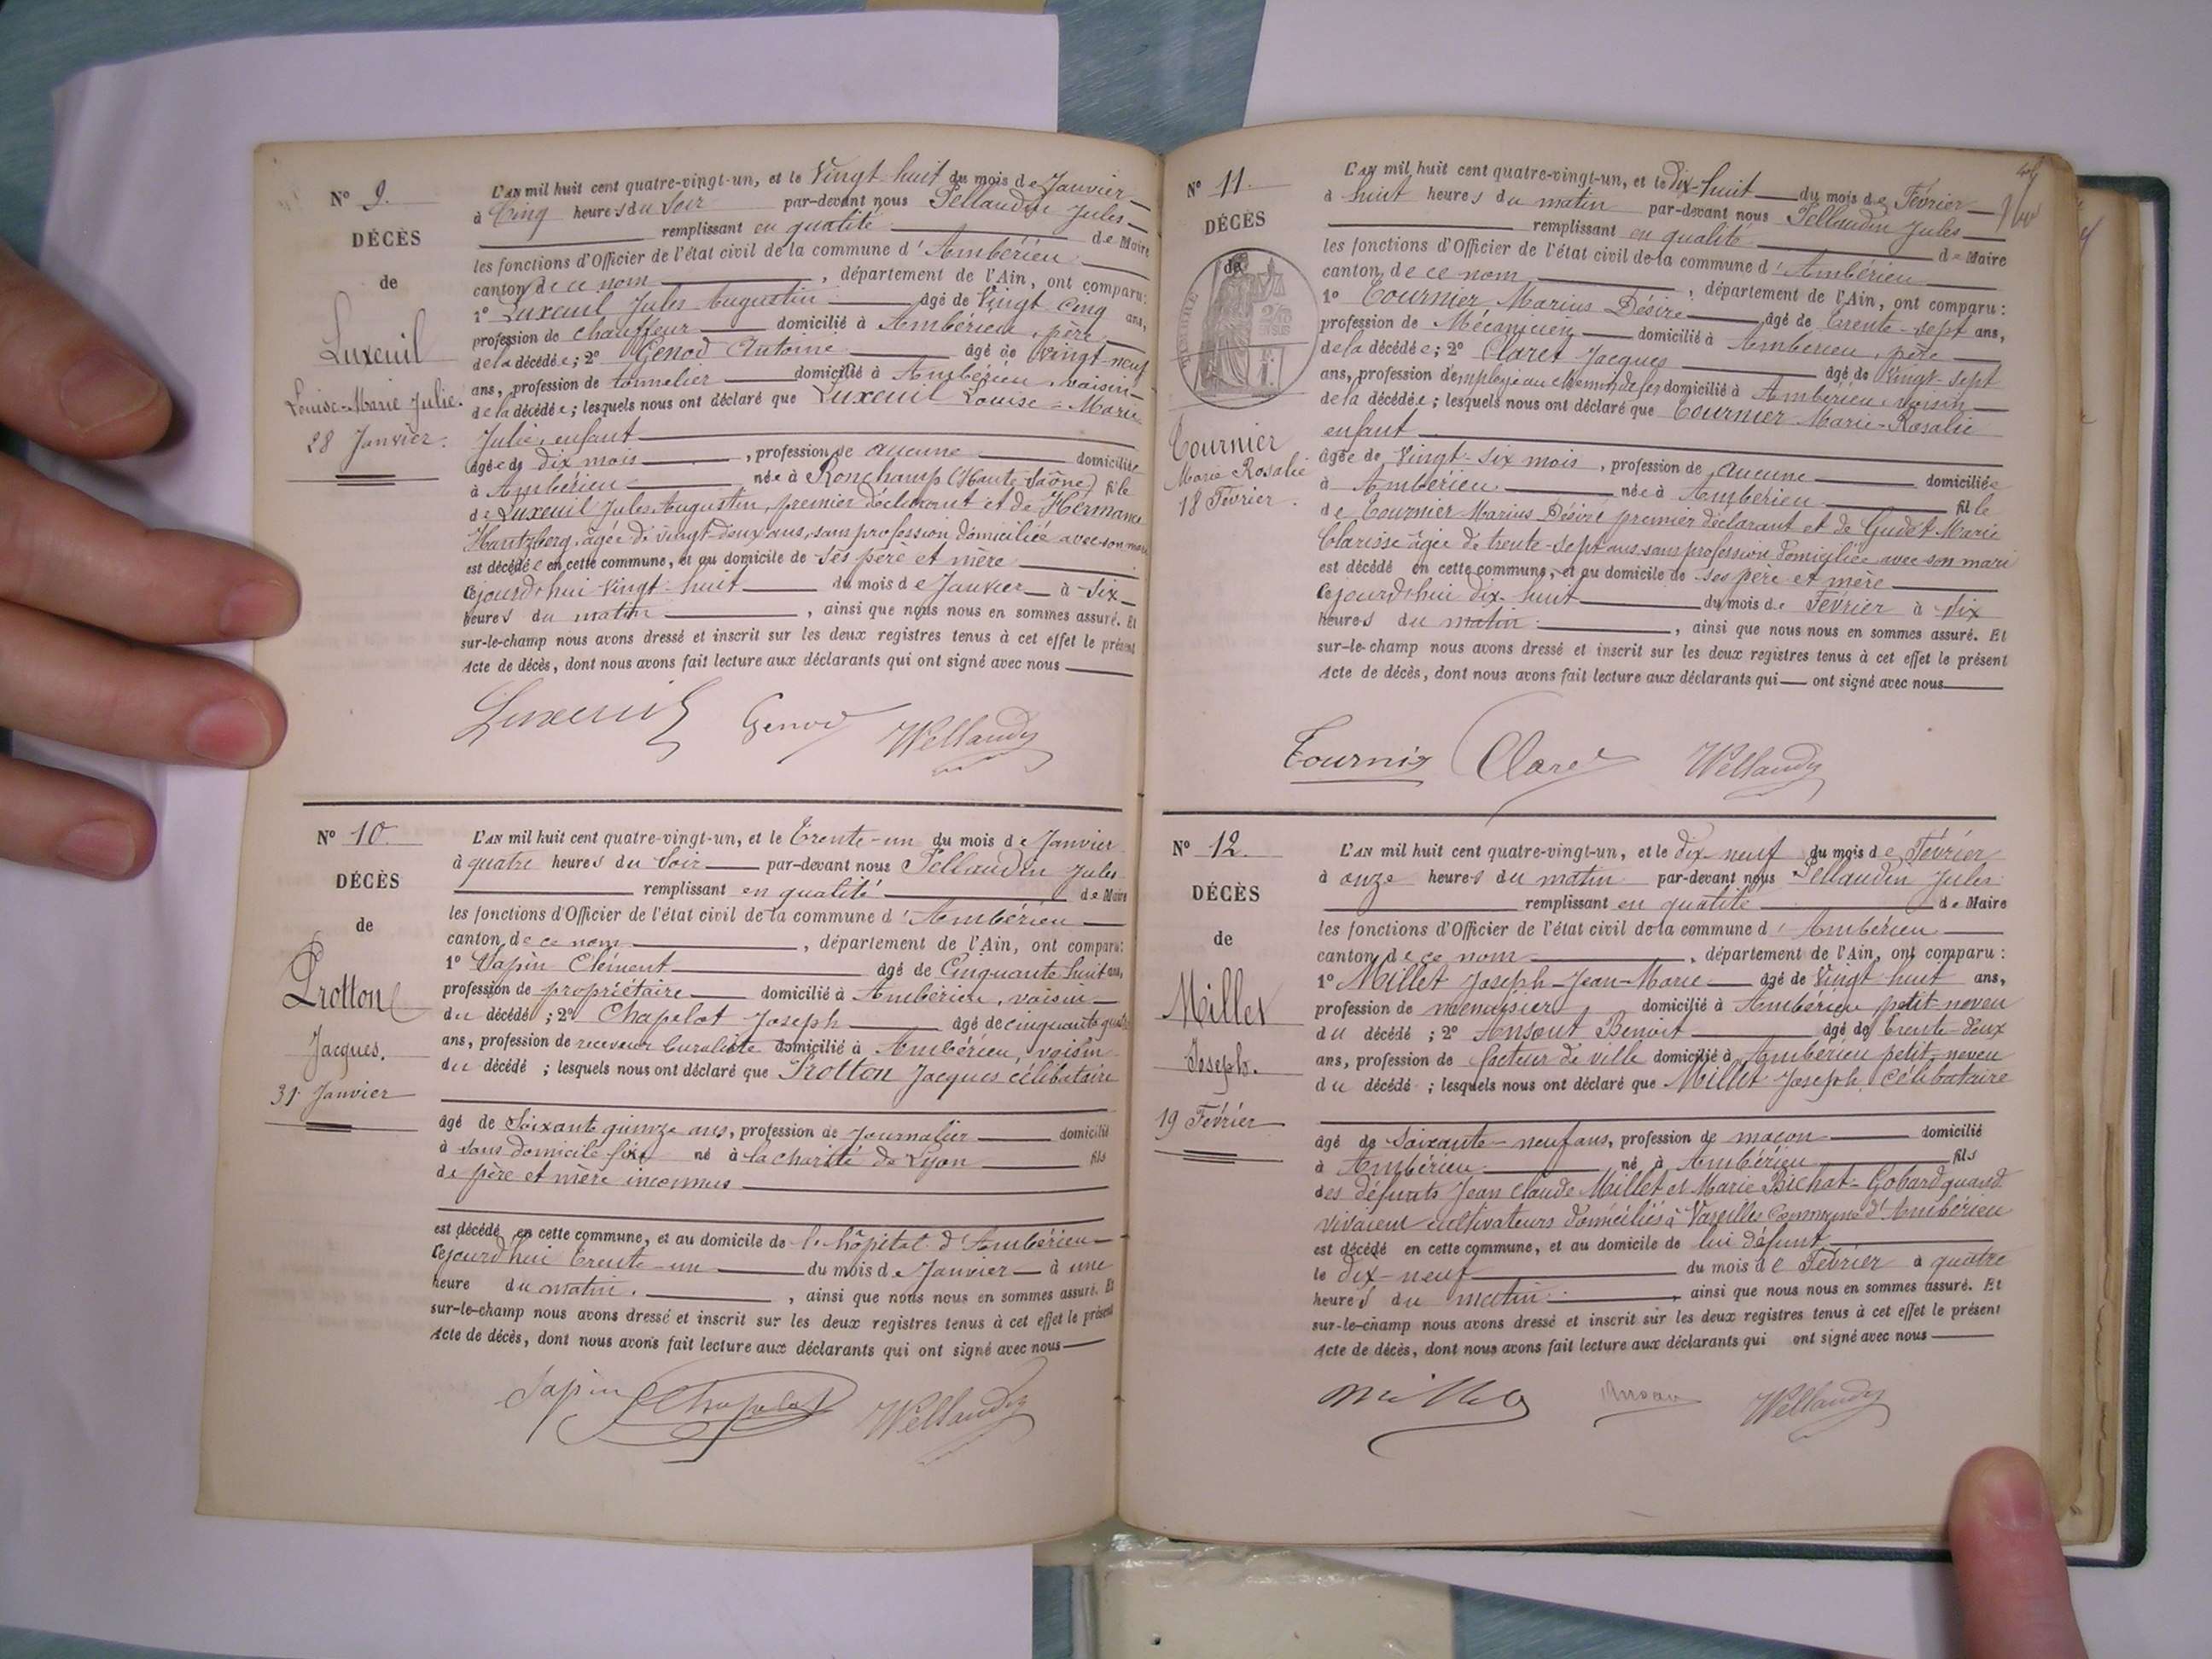 N° 9.
DÉCÈS
de
Luxeuil
Louise-Marie Julie.
28 Janvier.
L'AN mil huit cent quatre-vingt-un, et le Vingt huit du mois de Janvier
à Cinq heures du Soir par-devant nous Pellaudin Jules
remplissant en qualité de Maire
les fonctions d'Officier de l'état civil de la commune d'Ambérieu
canton de ce nom, département de l'Ain, ont comparu:
1° Luxeuil Jules Augustin âgé de Vingt cinq ans,
profession de chauffeur domicilié à Ambérieu, père
de la décédée; 2° Genod Antoine âgé de Vingt-neuf
ans, profession de tonnelier domicilié à Ambérieu, voisin
de la décédée; lesquels nous ont déclaré que Luxeuil Louise-Marie
Julie, enfant
âgée de dix mois, profession de aucune domiciliée
à Ambérieu née à Ronchamp (Haute-Saône) fille
de Luxeuil Jules Augustin, premier déclarant et de Hermance
Hantzberg, âgée de vingt-deux ans, sans profession domiciliée avec son mari
est décédée en cette commune, et au domicile de ses père et mère
cejourd'hui vingt-huit du mois de Janvier à Six
heures du matin, ainsi que nous nous en sommes assuré. Et
sur-le-champ nous avons dressé et inscrit sur les deux registres tenus à cet effet le présent
Acte de décès, dont nous avons fait lecture aux déclarants qui ont signé avec nous
Luxeuil Genod Pellaudin
N° 10
DÉCÈS
de
Protton
Jacques.
31 Janvier
L'AN mil huit cent quatre-vingt-un, et le Trente-un du mois de Janvier
à quatre heures du Soir par-devant nous Pellaudin Jules
remplissant en qualité de Maire
les fonctions d'Officier de l'état civil de la commune d'Ambérieu
canton de ce nom, département de l'Ain, ont comparu:
1° Sapin Clément âgé de Cinquante huit ans,
profession de propriétaire domicilié à Ambérieu, voisin
du décédé; 2° Chapelot Joseph âgé de cinquante quatre
ans, profession de receveur buraliste domicilié à Ambérieu, voisin
du décédé; lesquels nous ont déclaré que Protton Jacques célibataire
âgé de Soixante quinze ans, profession de Journalier domicilié
à Sans domicile fixe né à la charité de Lyon fils
de père et mère inconnus
est décédé en cette commune, et au domicile de l'hôpital d'Ambérieu
Cejourd'hui trente-un du mois de Janvier à une
heure du matin, ainsi que nous nous en sommes assuré. Et
sur-le-champ nous avons dressé et inscrit sur les deux registres tenus à cet effet le présent
Acte de décès, dont nous avons fait lecture aux déclarants qui ont signé avec nous
Sapin Chapelot Pellaudin
N° 11.
DÉCÈS
de
Tournier
Marie Rosalie
18 Février.
L'AN mil huit cent quatre-vingt-un, et le Dix-huit du mois de Février
à huit heures du matin par-devant nous Pellaudin Jules
remplissant en qualité de Maire
les fonctions d'Officier de l'état civil de la commune d'Ambérieu
canton de ce nom, département de l'Ain, ont comparu:
1° Tournier Marius Désiré âgé de Trente-sept ans,
profession de Mécanicien domicilié à Ambérieu, père
de la décédée; 2° Claret Jacques âgé de Vingt-sept
ans, profession d'employé au chemin de fer domicilié à Ambérieu, voisin
de la décédée; lesquels nous ont déclaré que Tournier Marie-Rosalie
enfant
âgée de Vingt-six mois, profession de aucune domiciliée
à Ambérieu née à Ambérieu fille
de Tournier Marius Désiré premier déclarant et de Gudet Marie
Clarisse âgée de trente-sept ans sans profession domiciliée avec son mari
est décédé en cette commune, et au domicile de ses père et mère
Cejourd'hui dix-huit du mois de Février à Six
heures du matin, ainsi que nous nous en sommes assuré. Et
sur-le-champ nous avons dressé et inscrit sur les deux registres tenus à cet effet le présent
Acte de décès, dont nous avons fait lecture aux déclarants qui ont signé avec nous
Tournier Claret Pellaudin
N° 12.
DÉCÈS
de
Millet
Joseph.
19 Février
L'AN mil huit cent quatre-vingt-un, et le dix-neuf du mois de Février
à onze heures du matin par-devant nous Pellaudin Jules
remplissant en qualité de Maire
les fonctions d'Officier de l'état civil de la commune d'Ambérieu
canton de ce nom, département de l'Ain, ont comparu:
1° Millet Joseph-Jean-Marie âgé de Vingt huit ans,
profession de menuisier domicilié à Ambérieu petit-neveu
du décédé; 2° Ansout Benoit âgé de Trente-deux
ans, profession de facteur de ville domicilié à Ambérieu petit-neveu
du décédé; lesquels nous ont déclaré que Millet Joseph, Célibataire
âgé de Soixante-neuf ans, profession de maçon domicilié
à Ambérieu né à Ambérieu fils
des défunts Jean Claude Millet et Marie Brichat-Gobard quand
vivaient cultivateurs domiciliés à Vareilles Commune d'Ambérieu
est décédé en cette commune, et au domicile de lui défunt
le dix-neuf du mois de Février à quatre
heures du matin, ainsi que nous nous en sommes assuré. Et
sur-le-champ nous avons dressé et inscrit sur les deux registres tenus à cet effet le présent
Acte de décès, dont nous avons fait lecture aux déclarants qui ont signé avec nous
Millet Pellaudin